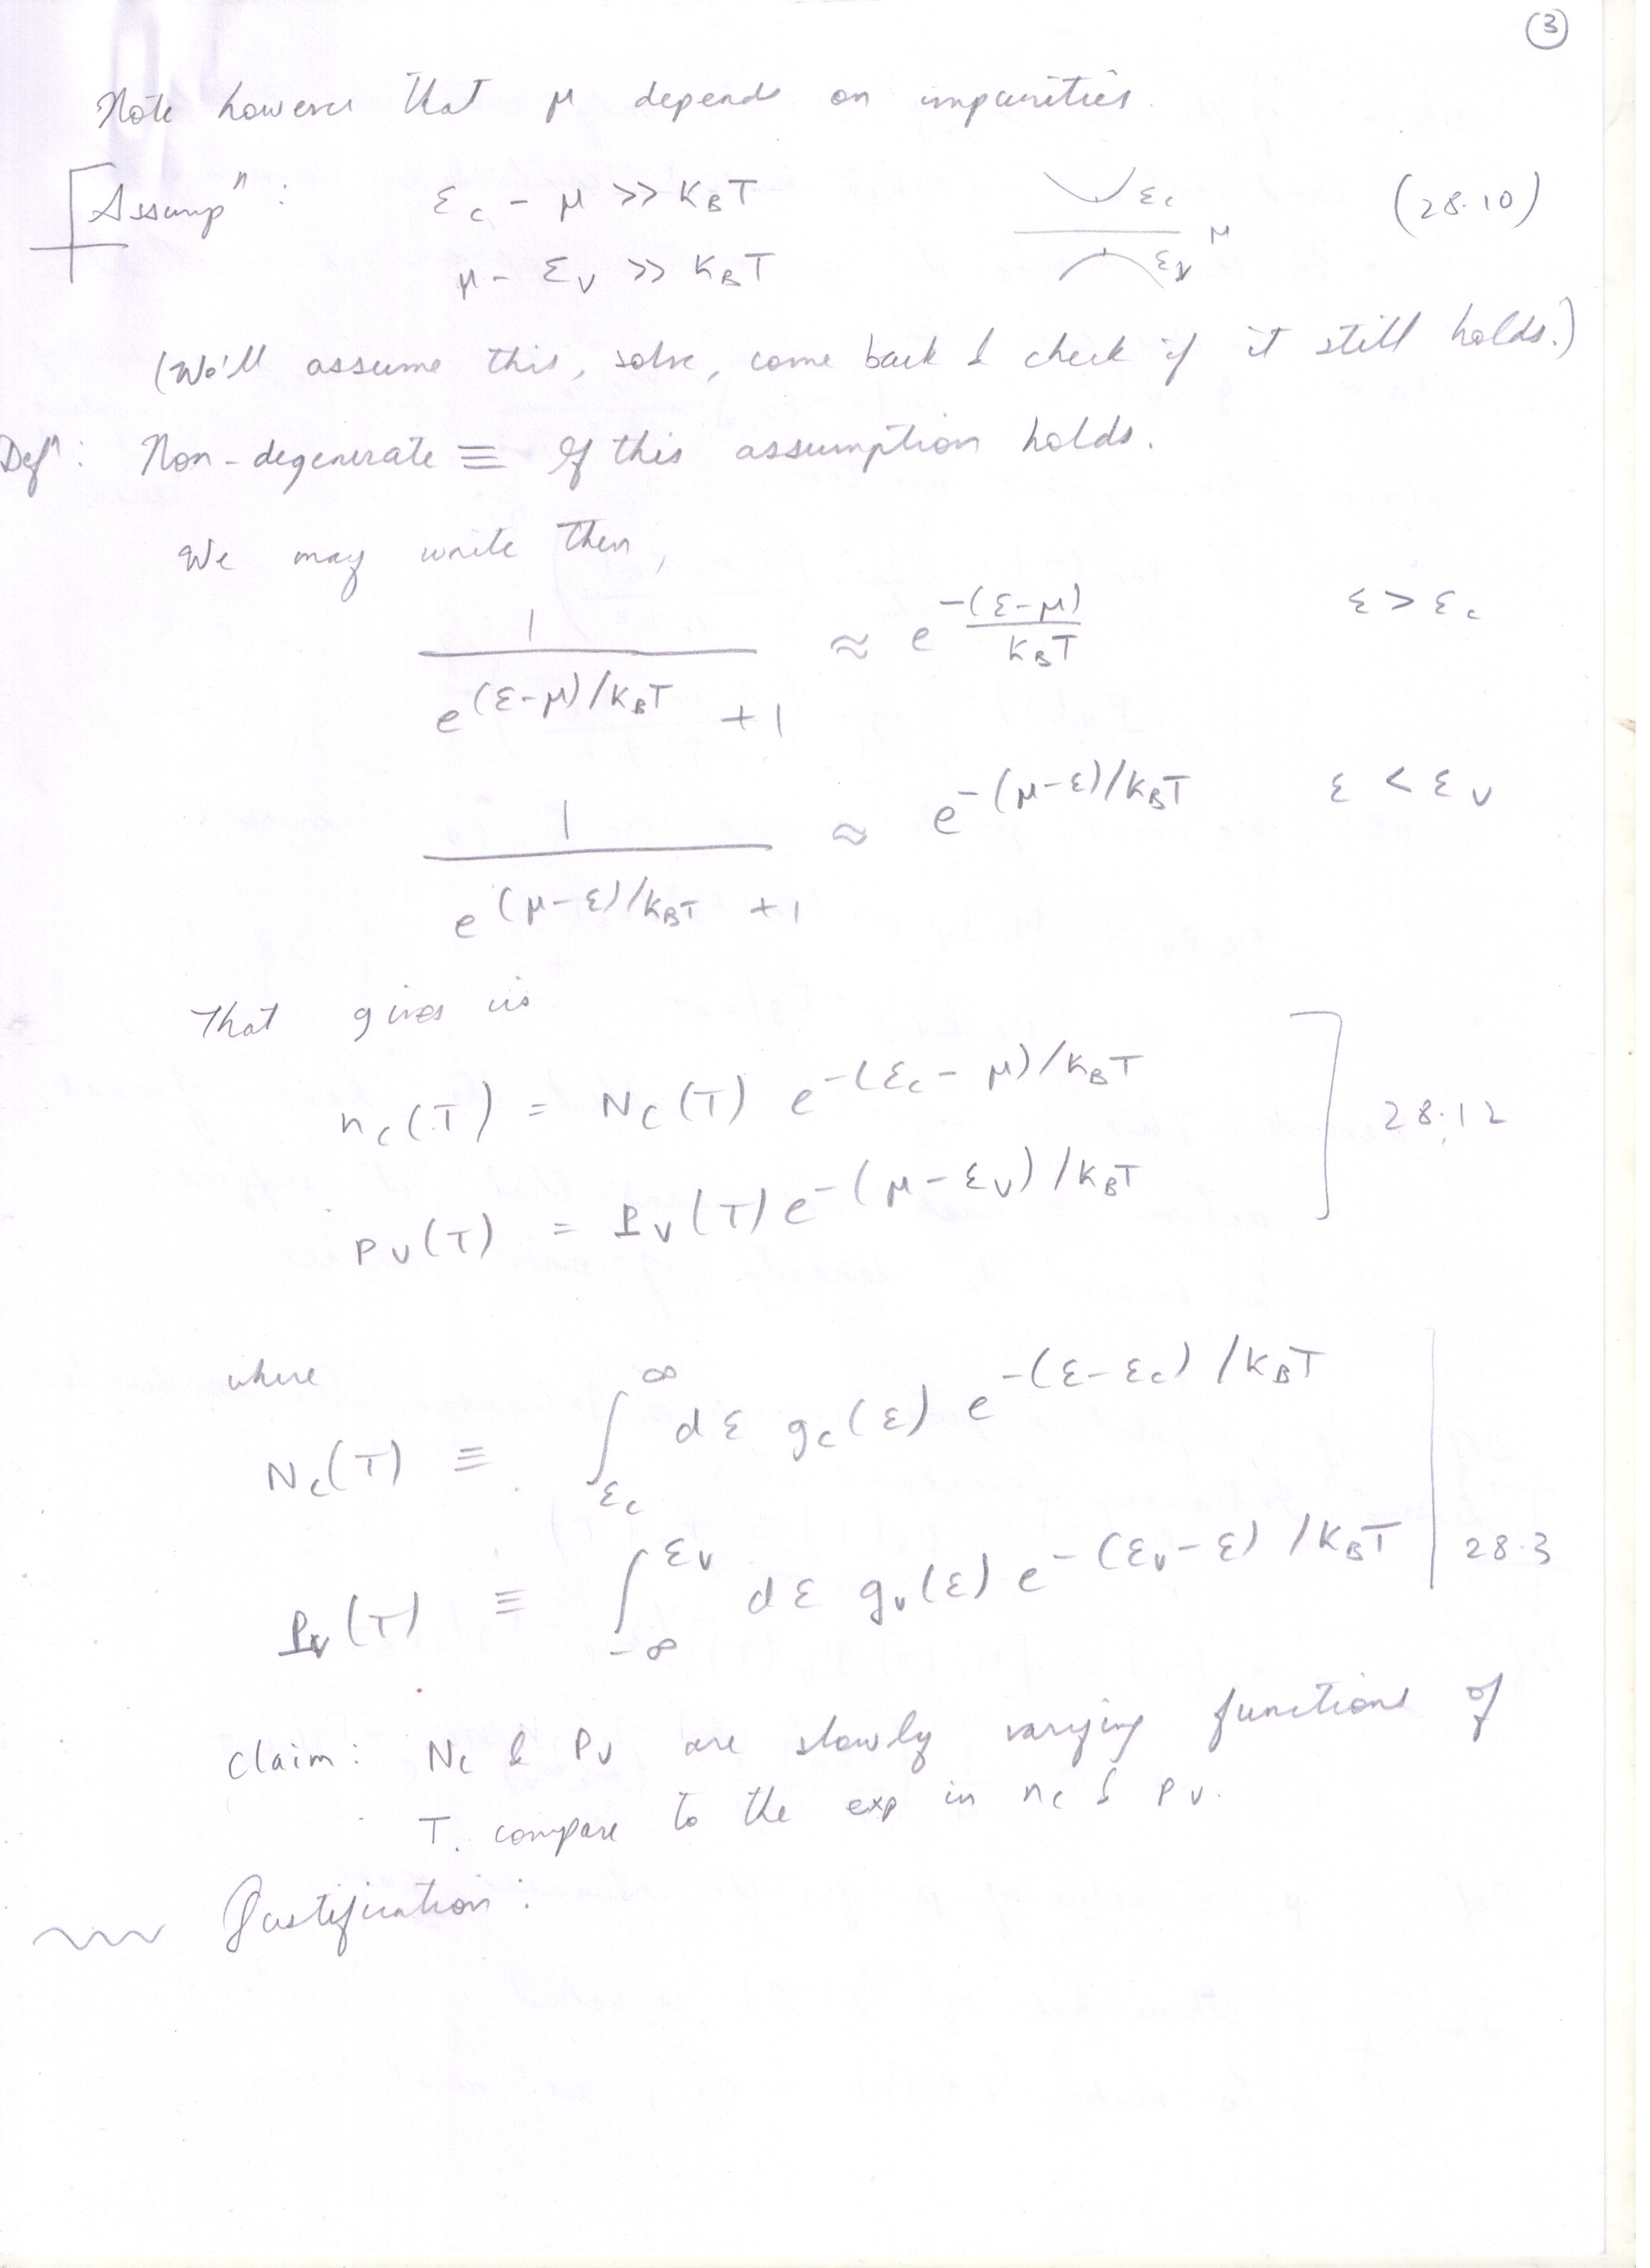 ③
Note however that μ depends on impurities.
Assumpⁿ : ε_c - μ >> K_BT (28.10)
μ - ε_v >> K_BT
ε_c
μ
ε_v
(We'll assume this, solve, come back & check if it still holds.)
Defⁿ: Non-degenerate ≡ If this assumption holds.
We may write then,
1 / (e^{(ε-μ)/K_BT} + 1) ≈ e^{-(ε-μ)/K_BT} ε > ε_c
1 / (e^{(μ-ε)/K_BT} + 1) ≈ e^{-(μ-ε)/K_BT} ε < ε_v
That gives us
n_c(T) = N_c(T) e^{-(ε_c - μ)/K_BT}
28.12
p_v(T) = P_v(T) e^{-(μ - ε_v)/K_BT}
where
N_c(T) ≡ ∫_{ε_c}^{∞} dε g_c(ε) e^{-(ε-ε_c)/K_BT}
P_v(T) ≡ ∫_{-∞}^{ε_v} dε g_v(ε) e^{-(ε_v-ε)/K_BT} 28.3
Claim: N_c & P_v are slowly varying functions of
T. compare to the exp in n_c & p_v.
Justification: